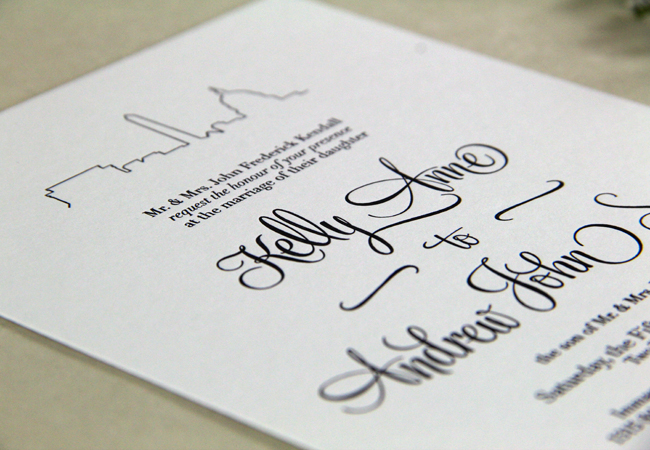 Mr. & Mrs. John Frederick Kendall
request the honour of your presence
at the marriage of their daughter
Kelly Anne
to
Andrew John
the son of Mr. & Mrs.
Saturday, the